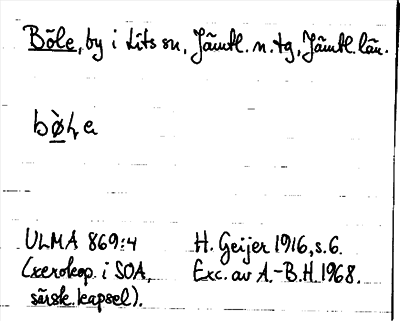 Böle, by i Lits sn, Jämtl. n. tg, Jämtl. län.
bø̀ɫe
ULMA 869:4 H. Geijer 1916, s. 6.
(xerokop. i SOA, Exc. av A.-B.H. 1968.
särsk. kapsel).